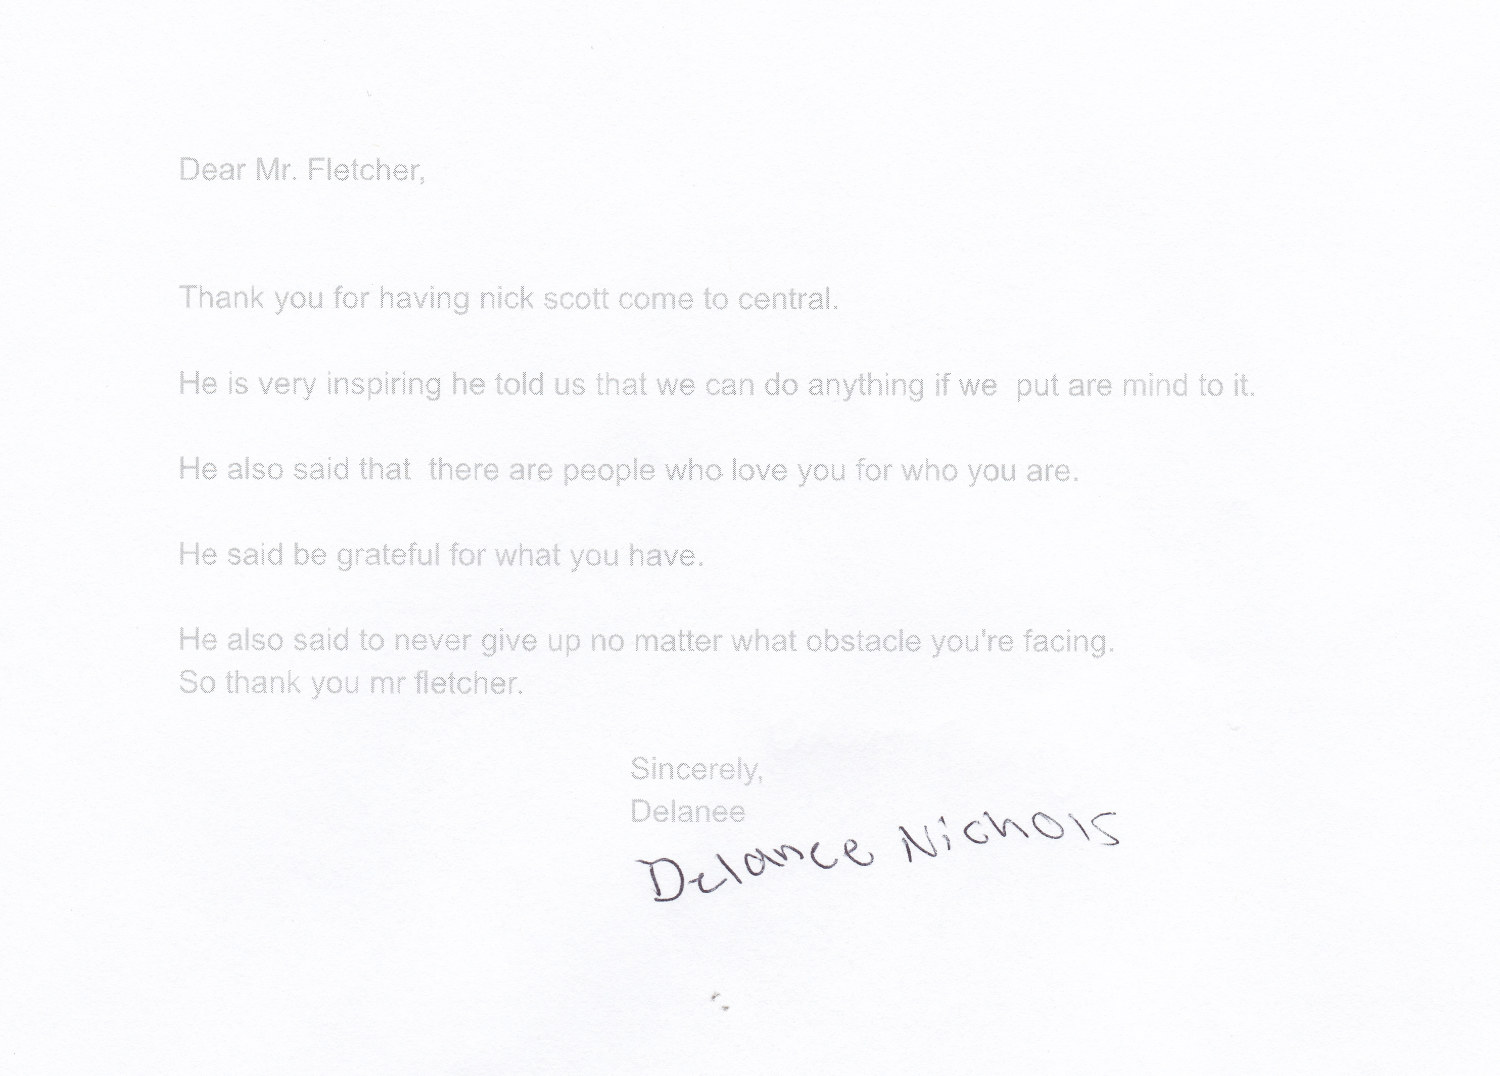 Dear Mr. Fletcher,
Thank you for having nick scott come to central.
He is very inspiring he told us that we can do anything if we  put are mind to it.
He also said that  there are people who love you for who you are.
He said be grateful for what you have.
He also said to never give up no matter what obstacle you're facing.
So thank you mr fletcher.
Sincerely,
Delanee
Delanee Nichols